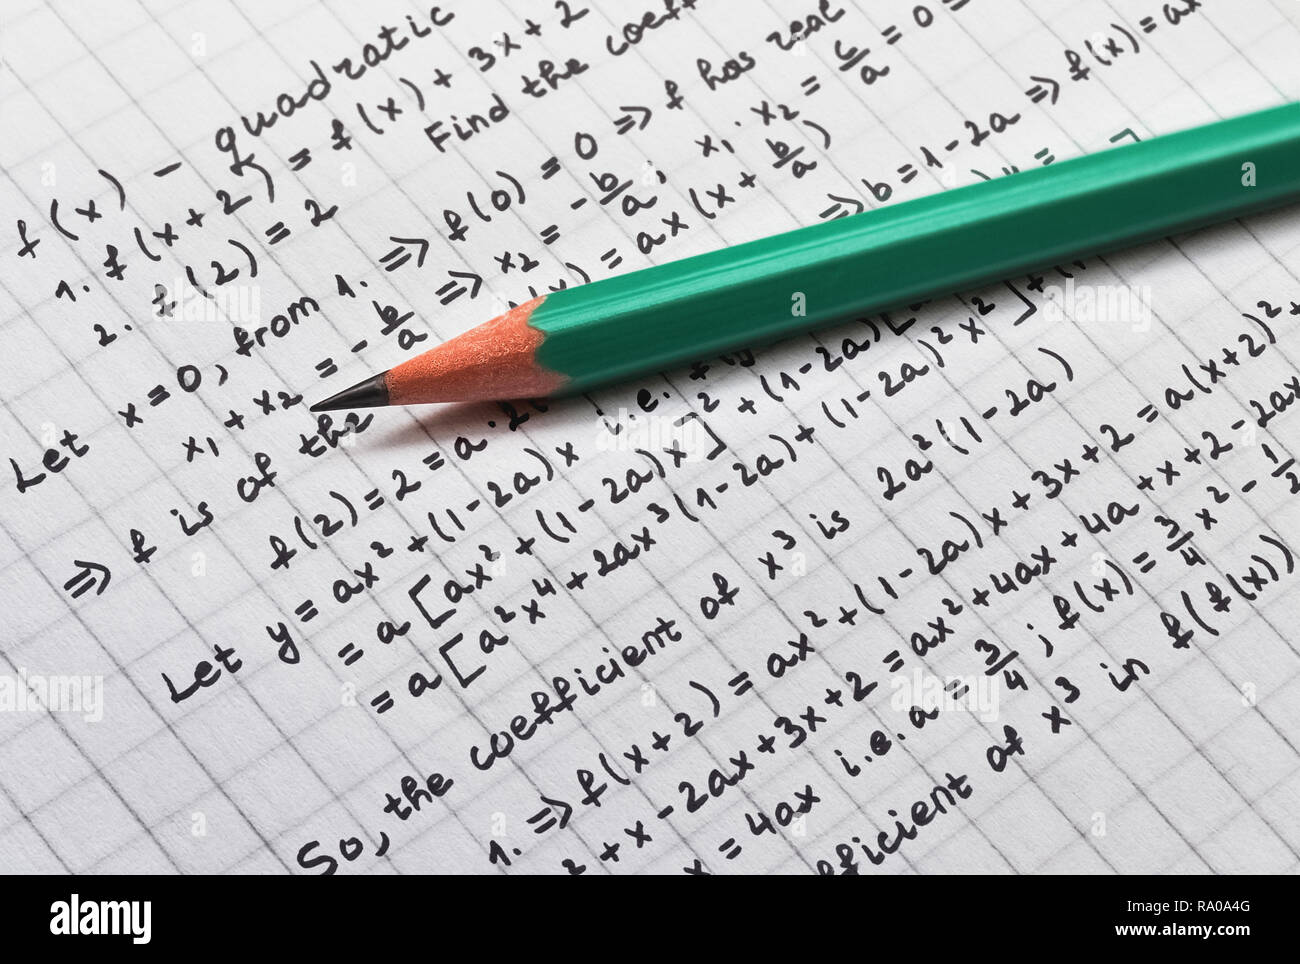 f(x) - quadratic
1. f(x+2) = f(x) + 3x + 2
2. f(2) = 2 Find the coeff
Let x=0, from 1. => f(0) = 0 => f has real
x₁ + x₂ = -b/a => x₂ = -b/a; x₁·x₂ = c/a = 0 =
=> f is of the = ax(x + b/a)
f(2) = 2 = a·2 => b = 1-2a => f(x) = ax
Let y = ax² + (1-2a)x i.e.
= a[ax² + (1-2a)x]² + (1-2a)[a
= a[a²x⁴ + 2ax³(1-2a) + (1-2a)²x²] + (1
So, the coefficient of x³ is 2a²(1-2a)
1. => f(x+2) = ax² + (1-2a)x + 3x + 2 = a(x+2)² +
² + x - 2ax + 3x + 2 = ax² + 4ax + 4a + x + 2 - 2ax
x = 4ax i.e. a = 3/4; f(x) = 3/4 x² - 1/2
fficient of x³ in f(f(x))
alamy
Image ID: RA0A4G
www.alamy.com